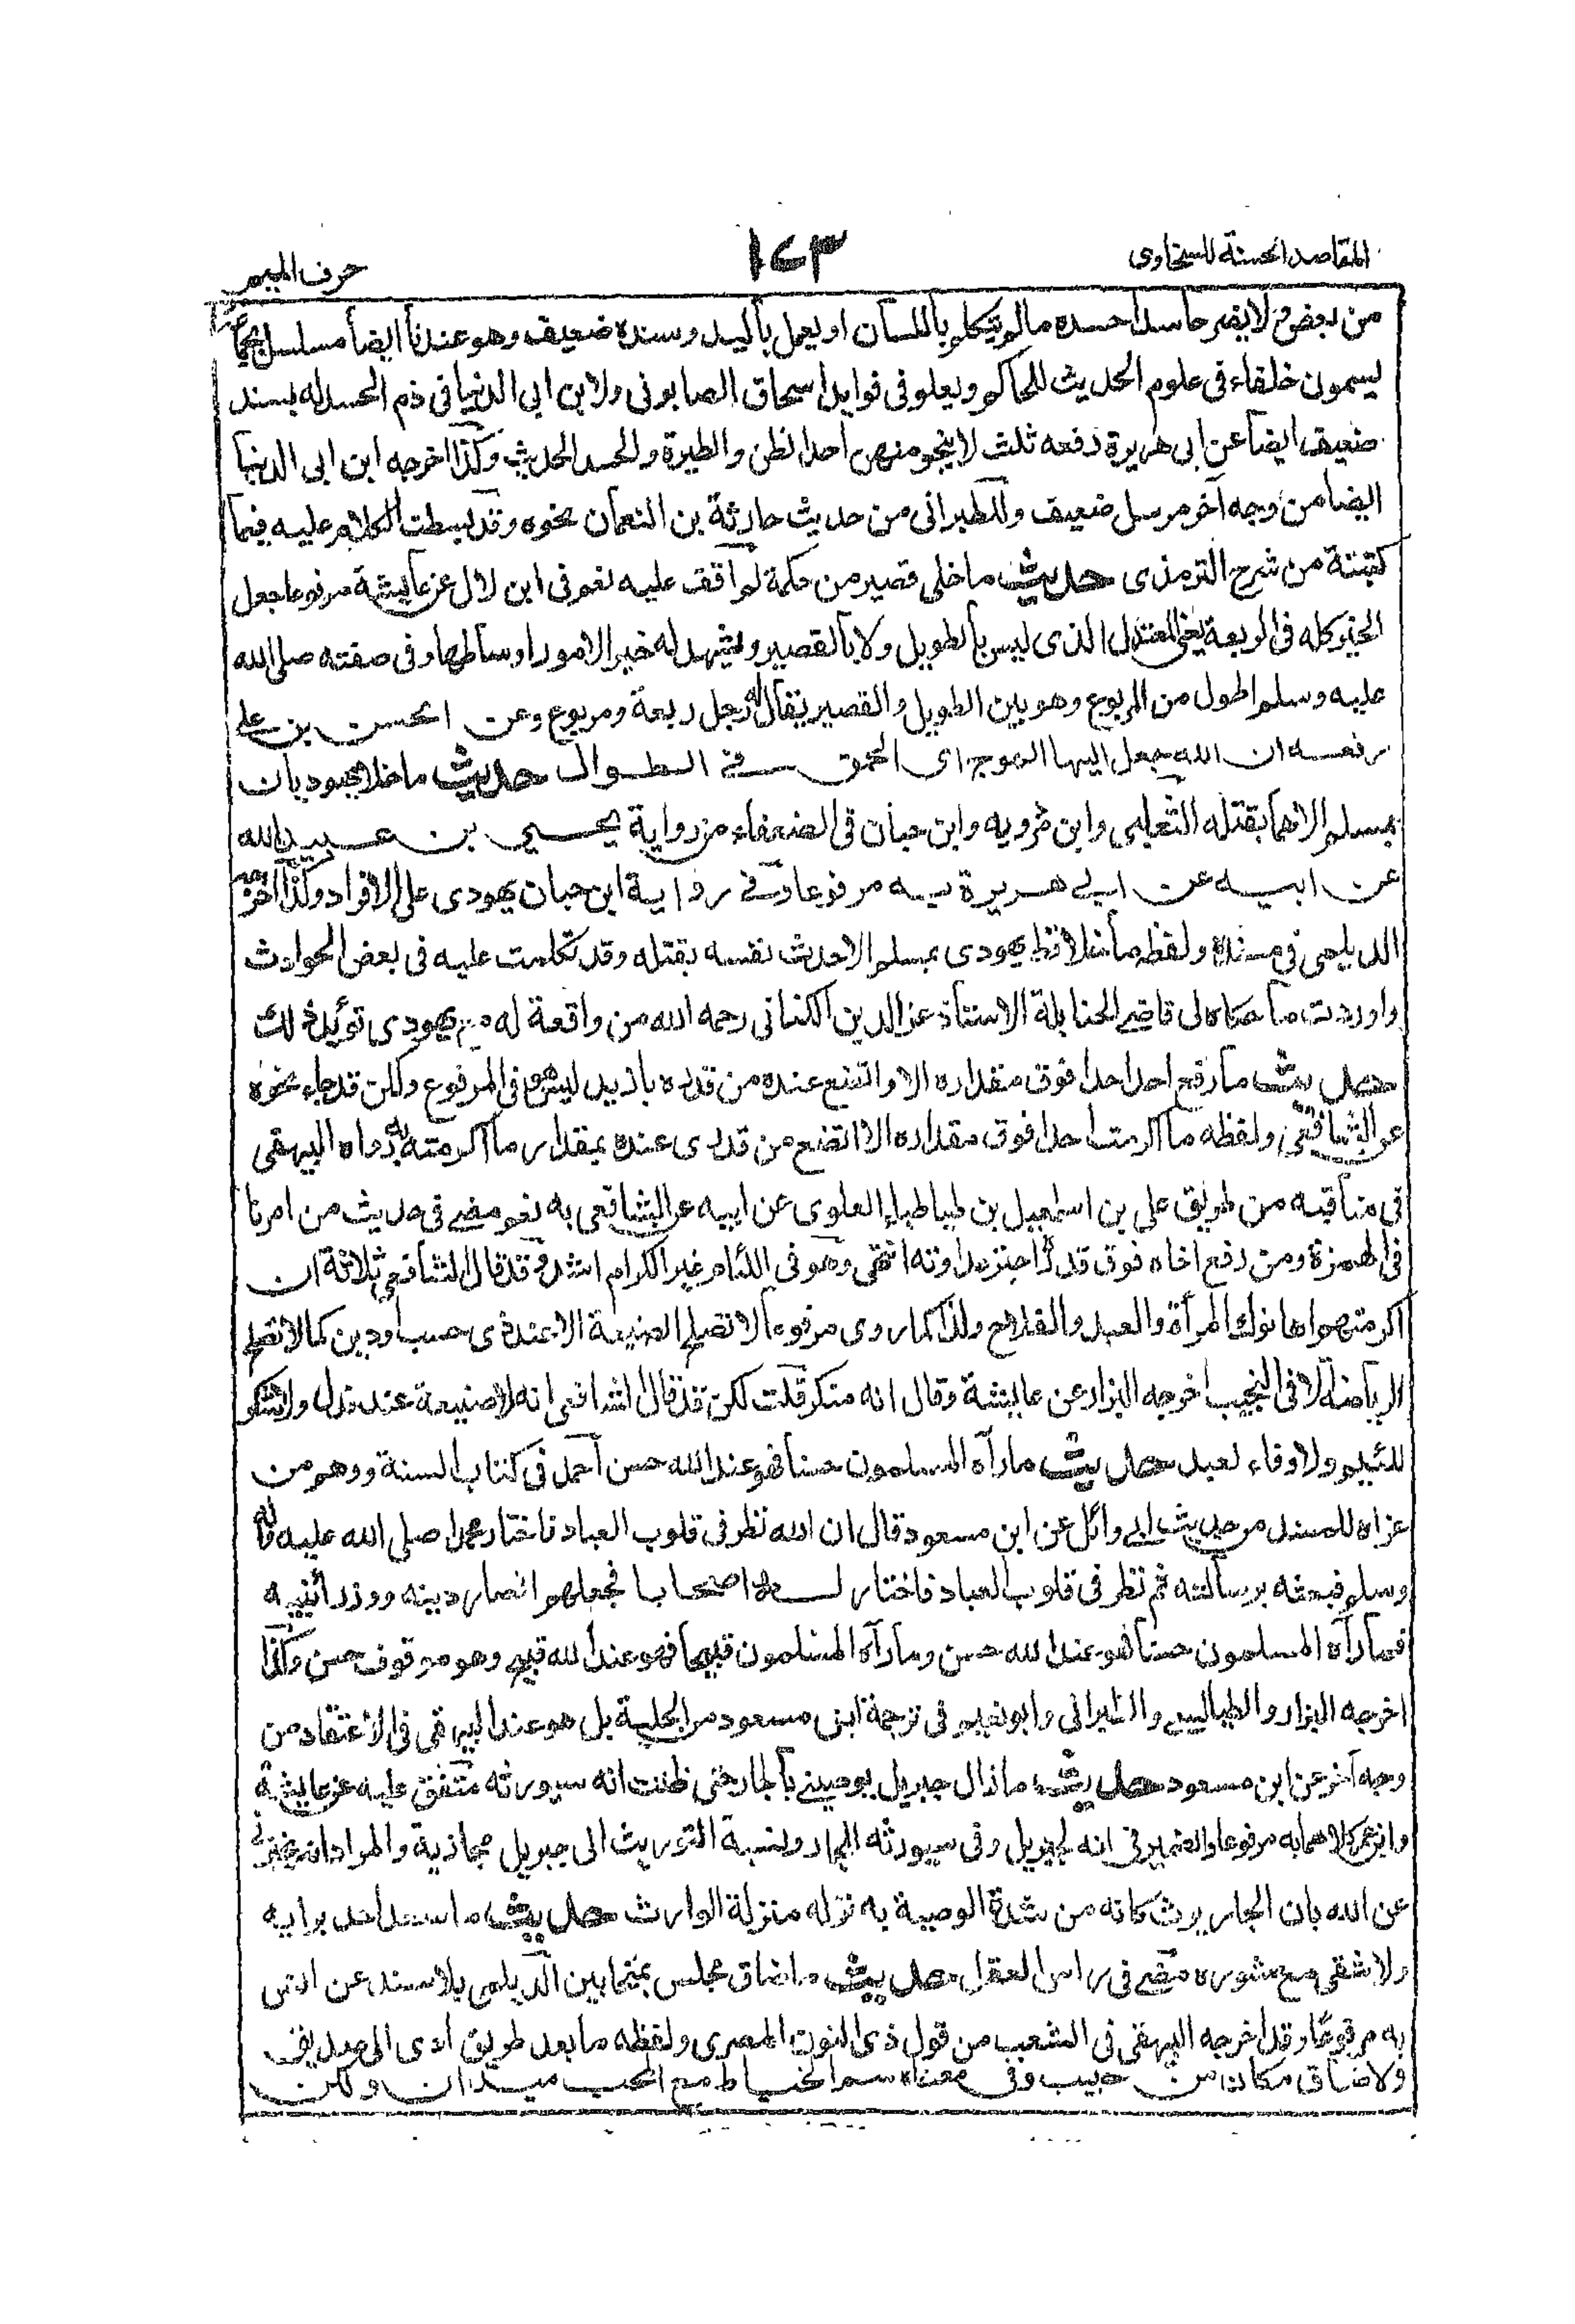 المقاصد الحسنة للسخاوى
١٤٣
حرف الميم
من بعض ولا يضر حاسدا حسده مالم يتكلم باللسان او يعمل باليد وسنده ضعيف وهو عندنا ايضا مسلسل
يسمون خلفاء فى علوم الحديث للحاكم وبعلو فى فوايد اسحاق الصابونى ولابن ابى الدنيا فى ذم الحسد له بسند
ضعيف ايضا عن ابى هريرة رفعه ثلث لا ينجو منهن احد الظن والطيرة والحسد الحديث وكذا اخرجه ابن ابى الدنيا
ايضا من وجه آخر مرسل ضعيف وللطبرانى من حديث حارثة بن النعمان نحوه وقد بسطت الكلام عليه فيما
كتبته من شرح الترمذى حديث ما خلى قصير من حكمة لم اقف عليه نعم فى ابن لال عن عايشة مرفوعا جعل
الخير كله فى الربعة يعنى المعتدل الذى ليس بالطويل ولا بالقصير ويشهد له خير الامور اوساطها وفى صفته صلى الله
عليه وسلم اطول من المربوع وهو بين الطويل والقصير يقال له رجل ربعة ومربوع وعن الحسن بن على
رفعه ان الله جعل اليها الهوج اى الحمق فى الطوال حديث ما خلا يهوديان
بمسلم الا هما بقتله الثعلبى وابن مردويه وابن حبان فى الضعفاء من رواية يحيى بن عبيد الله
عن ابيه عن ابى هريرة به مرفوعا وفى رواية ابن حبان يهودى على الافراد وكذا اخرجه
الديلمى فى مسنده ولفظه ما خلا قط يهودى بمسلم الا حدث نفسه بقتله وقد تكلمت عليه فى بعض الحوادث
واوردت ما حكاه لى قاضى الحنابلة الاستاذ عز الدين الكنانى رحمه الله من واقعة له مع يهودى تؤيد ذلك
حديث ما رفع احد احدا فوق مقداره الا واتضع عنده من قدره بازيد ليس هو فى المرفوع ولكن قد جاء نحوه
عن الشافعى ولفظه ما اكرمت احدا فوق مقداره الا اتضع من قدرى عنده بمقدار ما اكرمته به رواه البيهقى
فى مناقبه من طريق على بن اسمعيل بن طباطباء العلوى عن ابيه عن الشافعى به نعم مضى فى حديث من امرنا
فى الهمزة ومن رفع اخاه فوق قدره اجتر عداوته انتهى وهو فى اللئام غير الكرام اشد وقد قال الشافعى ثلاثة ان
اكرمتهم اهانوك المرأة والعبد والفلاح ولذا كما روى مرفوعا لا تصلح الصنيعة الا عند ذى حسب او دين كما لا تصلح
الرياضة الا فى النجيب اخرجه البزار عن عايشة وقال انه منكر قلت لكن قد قال الشافعى انه لا صنيعة عند نذل ولا شكر
للئيم ولا وفاء لعبد حديث ما رآه المسلمون حسنا فهو عند الله حسن احمد فى كتاب السنة ووهم من
عزاه للمسند من حديث ابى وائل عن ابن مسعود قال ان الله نظر فى قلوب العباد فاختار محمدا صلى الله عليه واله
وسلم فبعثه برسالته ثم نظر فى قلوب العباد فاختار له اصحابا فجعلهم انصار دينه ووزراء نبيه
فما رآه المسلمون حسنا فهو عند الله حسن وما رآه المسلمون قبيحا فهو عند الله قبيح وهو موقوف حسن وكذا
اخرجه البزار والطيالسى والطبرانى وابو نعيم فى ترجمة ابن مسعود من الحلية بل هو عند البيهقى فى الاعتقاد من
وجه آخر عن ابن مسعود حديث ما زال جبريل يوصينى بالجار حتى ظننت انه سيورثه متفق عليه عن عايشة
وابن عمر كلاهما به مرفوعا والضمير فى انه لجبريل وفى سيورثه للجار ونسبة التوريث الى جبريل مجازية والمراد انه يخبرنى
عن الله بان الجار يرث كانه من شدة الوصية به نزله منزلة الوارث حديث ما سعد احد برايه
ولا شقى مع مشوره مضى فى راس العقل حديث ما ضاق مجلس بمتحابين الديلمى بلا سند عن انس
به مرفوعا وقد اخرجه البيهقى فى الشعب من قول ذى النون المصرى ولفظه ما بعد طريق ادى الى صديق
ولا ضاق مكان من حبيب وفى معناه سم الخياط مع الحب ميدان ولكن